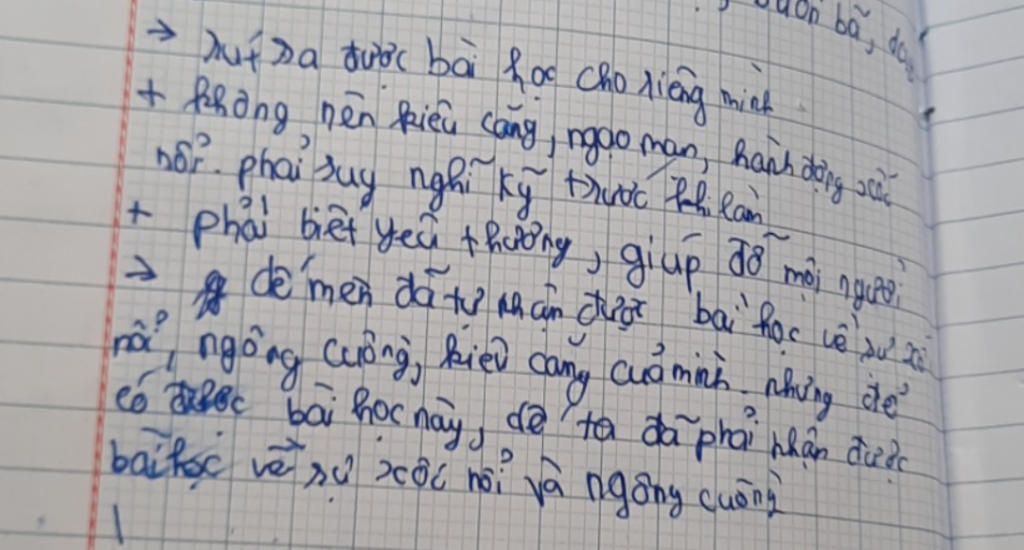 buồn bã,
→ rút ra được bài học cho riêng mình
+ không nên kiêu căng, ngạo mạn, hành động xốc
nổi. phải suy nghĩ kỹ trước khi làm
+ phải biết yêu thương, giúp đỡ mọi người
→ dế mèn đã tự nhận được bài học về sự xốc
nổi, ngông cuồng, kiêu căng của mình. nhưng để
có được bài học này, dế ta đã phải nhận được
bài học về sự xốc nổi và ngông cuồng